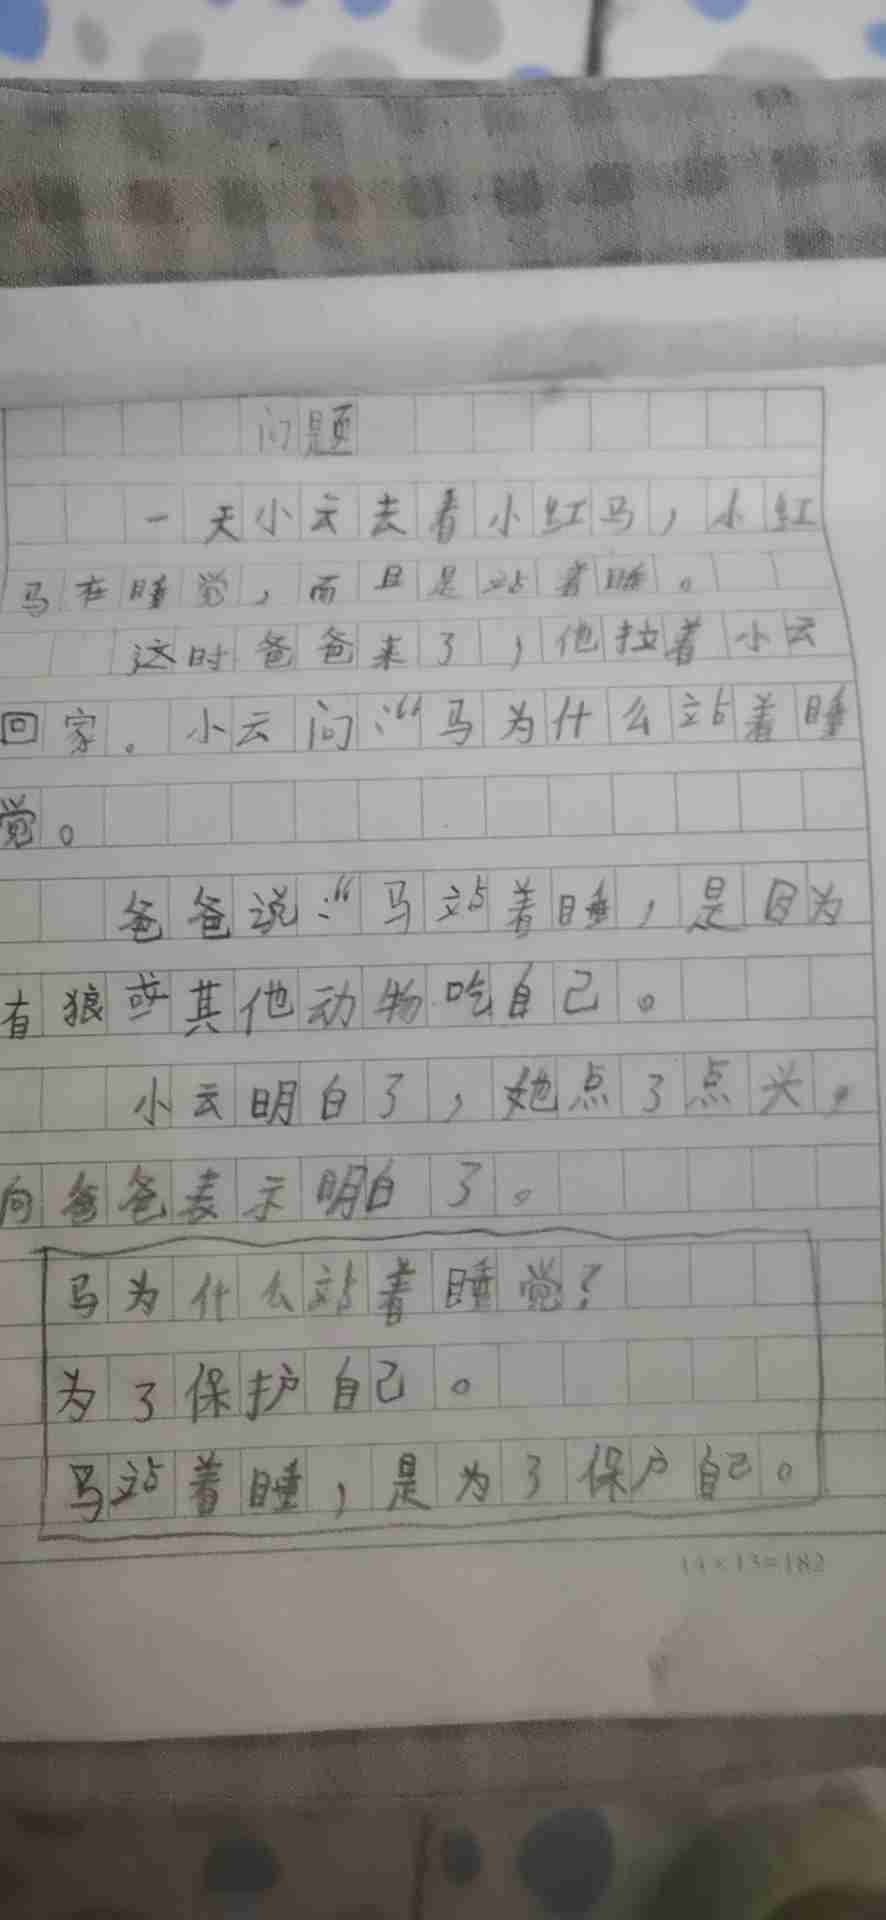 问题
一天小云去看小红马，小红
马在睡觉，而且是站着睡。
这时爸爸来了，他拉着小云
回家。小云问：“马为什么站着睡
觉。
爸爸说：“马站着睡，是因为
有狼或其他动物吃自己。
小云明白了，她点了点头，
向爸爸表示明白了。
马为什么站着睡觉？
为了保护自己。
马站着睡，是为了保户自己。
14×13=182